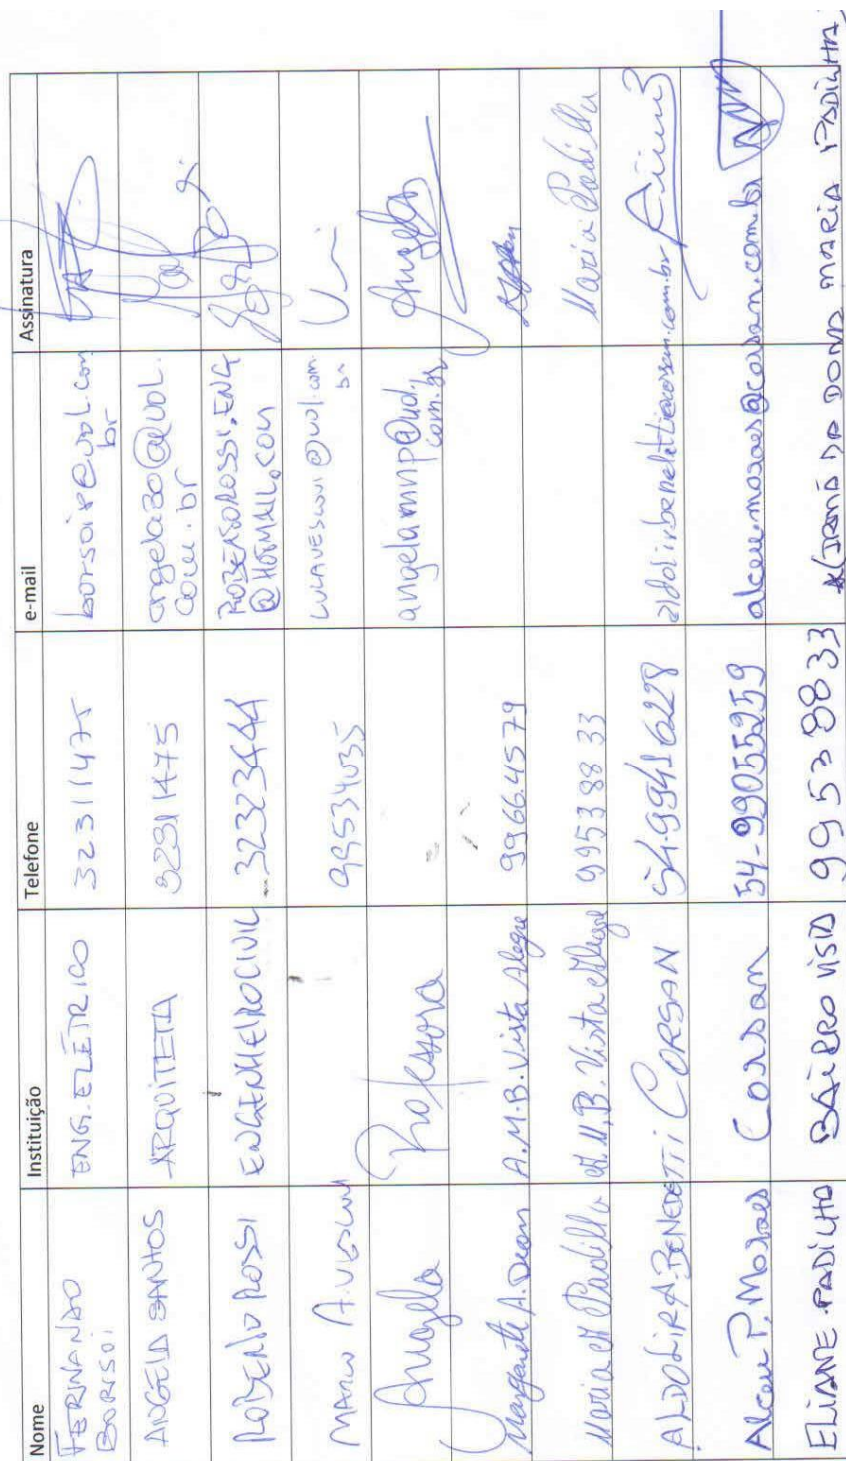 Nome Instituição Telefone e-mail Assinatura
FERNANDO ENG. ELÉTRICO 32311475 borsoi@uol.com
BORSOI br
ANGELA SANTOS ARQUITETA 32311475 angela30@uol.
com.br
ROBERTO ROSSI ENGENHEIRO CIVIL 32323444 ROBERTOROSSI.ENG
@HOTMAIL.COM
MARCO A. 99534035 @uol.com.
br
Angela Professora angelamnp@uol. Angela
com.br
Margarete A. Dean A.M.B. Vista Alegre 9966.4579
Maria M Padilha A.M.B. Vista Alegre 9953 88 33 Maria Padilha
ALDOLIR A. BENEDETTI CORSAN 54.99416228 aldolir.benedetti@corsan.com.br
Alceu P. Moraes Corsan 54-99055959 alceu.moraes@corsan.com.br
ELIANE PADILHA BAIRRO VISTA 9953 8833 (IRMÃ DA DONA MARIA PADILHA)